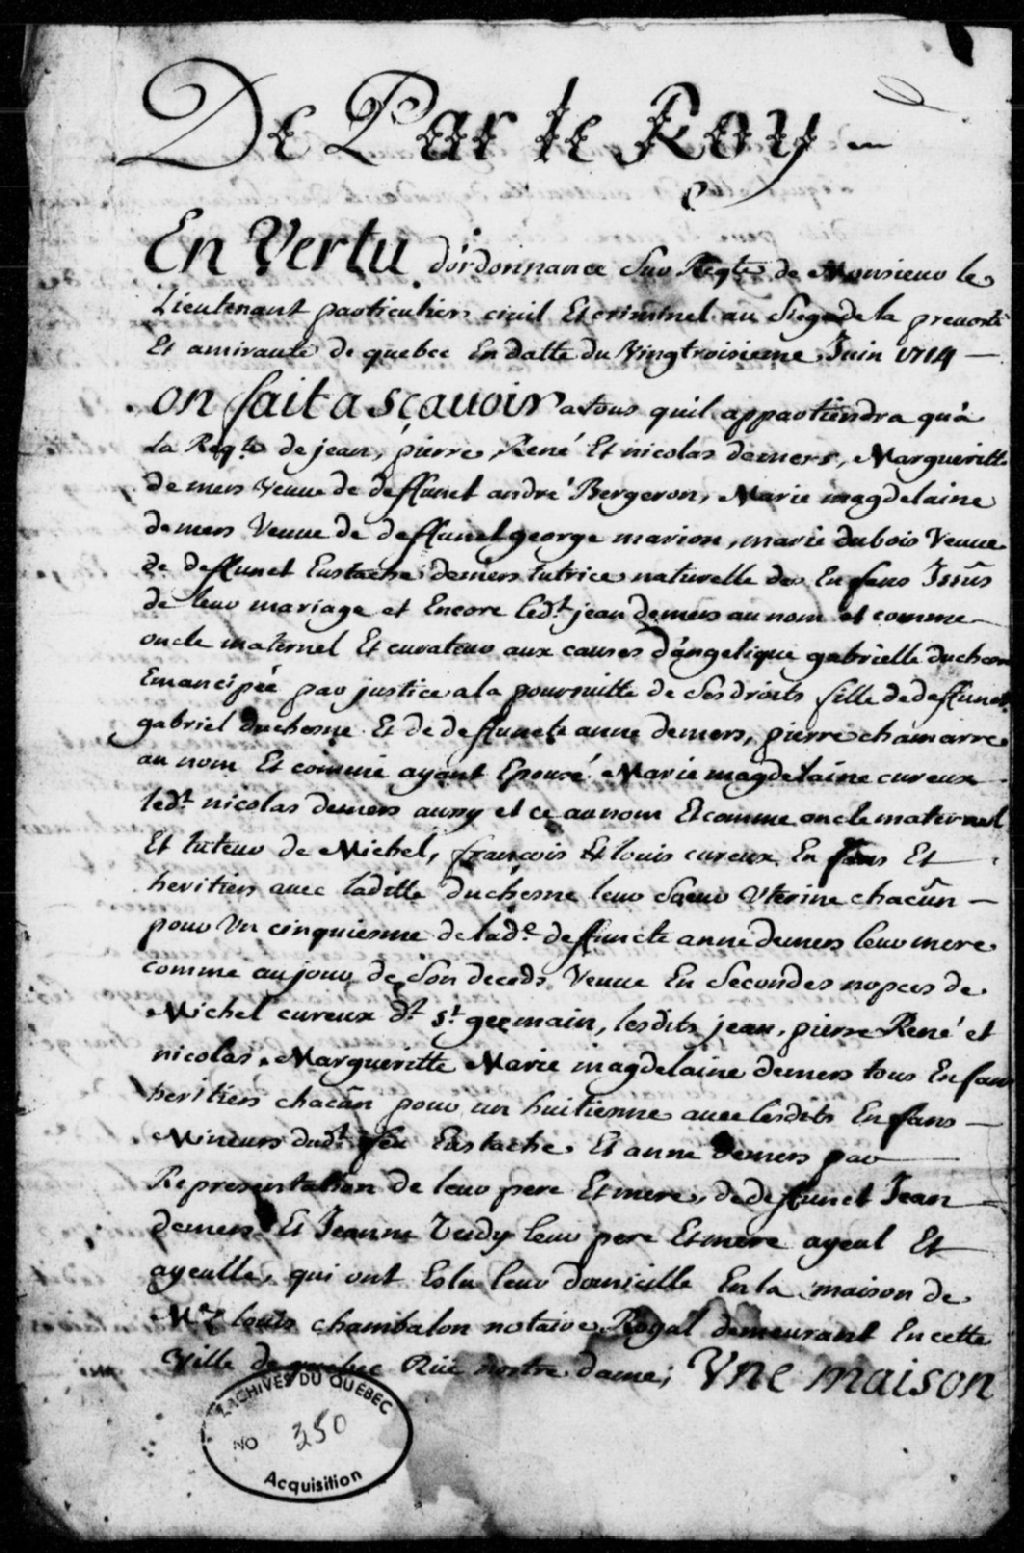 De Par le Roy
En Vertu d'ordonnance Sur Reqte de Monsieur le
Lieutenant particuliers civil Et criminel au Siege de la prevosté
Et amirauté de quebec En datte du Vingtroisieme Juin 1714
on fait a sçavoir a tous quil appartiendra qu'à
La Reqte de jean, pierre, René Et nicolas demers, Margueritte
demers Veuve de deffunct andré Bergeron, Marie magdelaine
demers Veuve de deffunct george marion, marie dubois Veuve
de deffunct Eustache demers tutrice naturelle des Enfans Issûs
de leur mariage et Encore ledt jean demers au nom et comme
oncle maternel Et curateur aux causes d'angelique gabrielle duchesne
Emancipée par justice a la poursuitte de Ses droits fille de deffunct
gabriel duchesne Et de deffuncte anne demers, pierre chamarre
au nom Et comme ayant Epousé Marie magdelaine cureux
ledt nicolas demers aussy et ce au nom Et comme oncle maternel
Et tuteur de Michel, françois Et louis cureux Enfans Et
heritiers avec laditte duchesne leur Saeur Vterine chacûn
pour Vn cinquiesme de lade deffuncte anne demers leur mere
comme au jour de Son deceds Veuve En Secondes nopces de
Michel cureux dt st germain, lesdits jean, pierre René et
nicolas, Margueritte Marie magdelaine demers tous Enfans
heritiers chacûn pour un huitiesme avec lesdits Enfans
Mineurs dudt feu Eustache Et anne demers par
Representation de leur pere Et mere, de deffunct Jean
demers Et Jeanne Vedy leur pere Et mere ayeul Et
ayeulle, qui ont Eslu leur domicille En la maison de
Me louis chambalon notaire Royal demeurant En cette
Ville de quebec Rüe nostre dame; Vne maison
ARCHIVES DU QUEBEC
NO 350
Acquisition